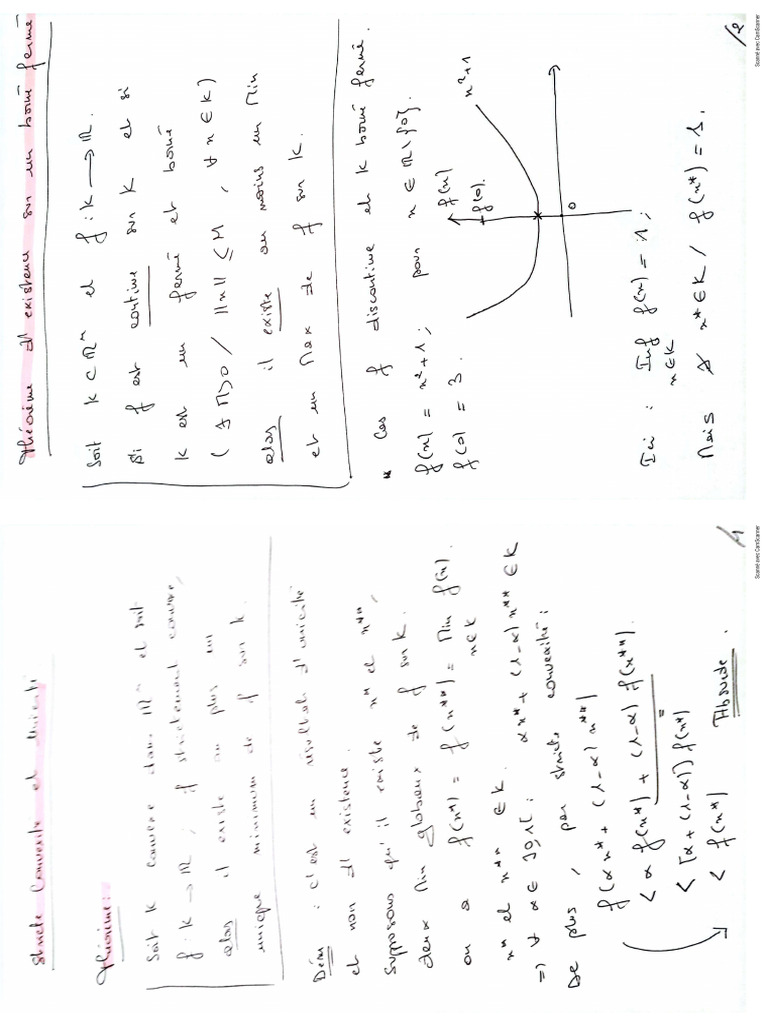 Stricte Convexité et Unicité
Théorème :
Soit K convexe dans ℝⁿ et soit
f : K → ℝ, f strictement convexe,
alors il existe au plus un
unique minimum de f sur K.
Dém : c'est un résultat d'unicité
et non d'existence.
Supposons qu'il existe x* et x**,
deux Min globaux de f sur K.
on a f(x*) = f(x**) = Min f(x).
x∈K
x* et x** ∈ K.
=> ∀ α ∈ ]0,1[ : αx* + (1-α)x** ∈ K
De plus, par stricte convexité :
f(αx* + (1-α)x**)
< αf(x*) + (1-α)f(x**).
=
< [α + (1-α)] f(x*)
< f(x*) Absurde.
1/
Scanné avec CamScanner
Théorème d'existence sur un borné fermé
Soit K ⊂ ℝⁿ et f : K → ℝ.
Si f est continue sur K et si
K est un fermé et borné
(∃ M>0 / ||x|| ≤ M, ∀ x ∈ K)
alors il existe au moins un Min
et un Max de f sur K.
* Cas f discontinue et K borné fermé.
f(x) = x²+1 ; pour x ∈ ℝ\{0}.
f(0) = 3.
x²+1
f(x)
f(0).
0
Ici : Inf f(x) = 1 ;
x∈K
Mais ∄ x* ∈ K / f(x*) = 1.
/2
Scanné avec CamScanner